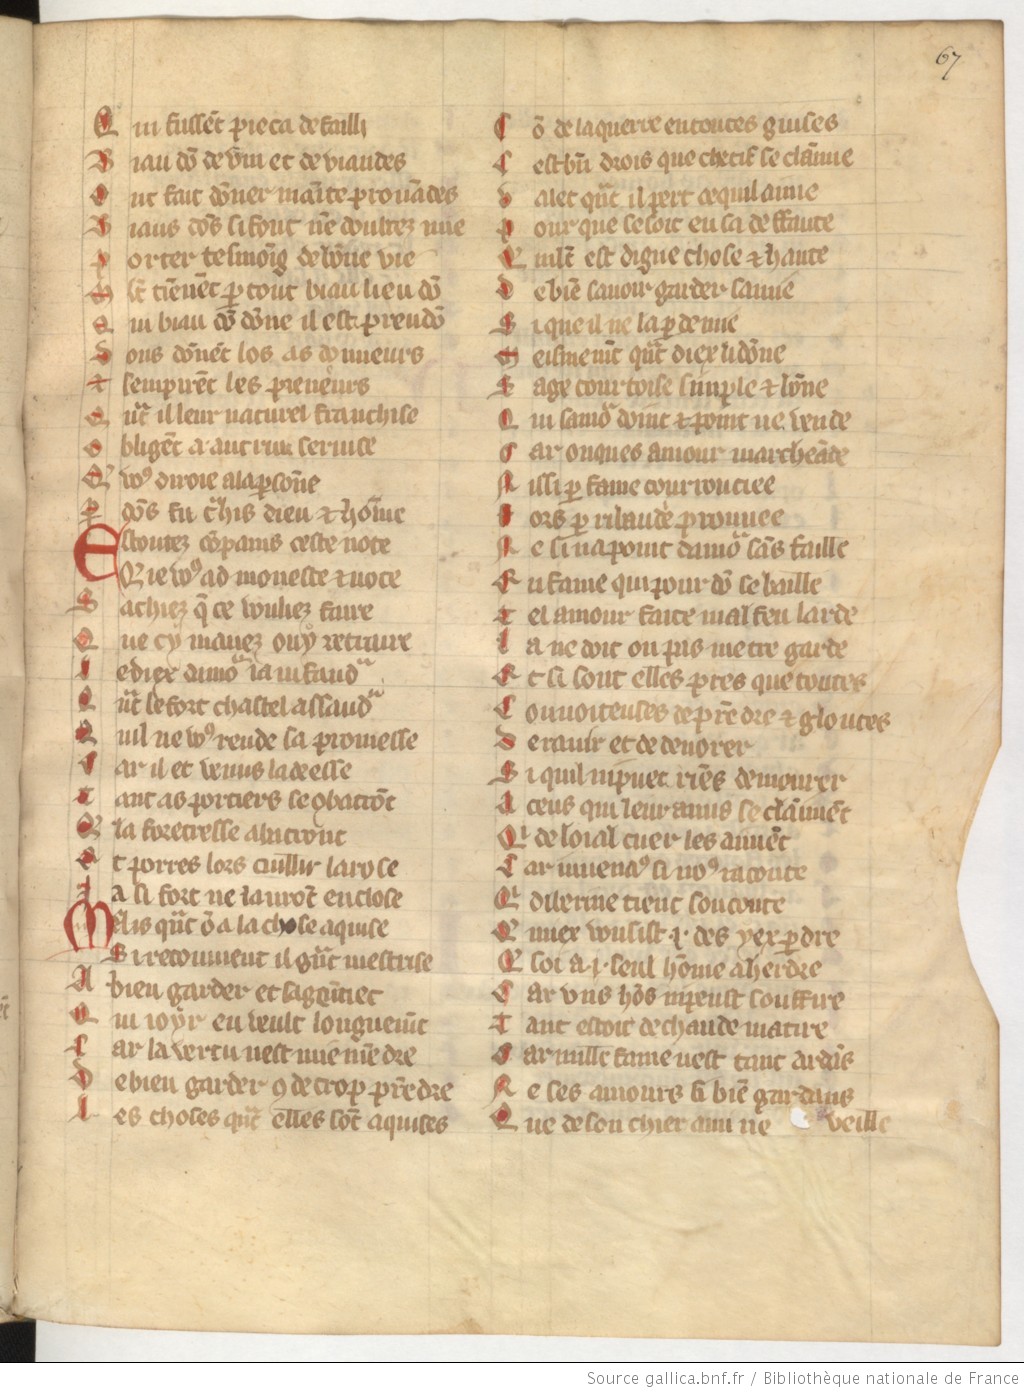 67
Q ui fussēt pieca de failli
B iau dō de vin et de viandes
O nt fait dōner mainte prouādes
B iaus dōs si font nē doutez mie
P orter tesmoig de bōne vie
M lt tienēt p tout biau lieu dō
Q ui biau dō dōne il est preudō
D ons dōnēt los as donneurs
E t sempirēt les preneurs
Q ūt il leur naturel franchise
O bligēt a autrui seruise
Q v⁹ diroie a la psōne
P dōs fu chis dieu ⁊ hōme
Escoutez cōpains ceste note
Q ie v⁹ ad moneste ⁊ note
S achiez q̄ ce voulez faire
Q ue cy mauez ouy retraire
L e diex damo ia ni faud
Q ūt le fort chastel assaud
Q uil ne v⁹ rende sa promesse
C ar il et venus la deesse
T ant as portiers se cōbatrōt
Q la forteresse abatront
E t porres lors cuillir la rose
J a si fort ne laurōt enclose
Mais qūt ō a la chose aquise
S i reconuient il gūt mestrise
A bien garder et sagemēt
Q ui ioyr en veult longuemēt
C ar la vertu nest mie mēdre
D e bien garder ⁊ de trop prēdre
L es choses qūt elles sōt aquises
C ō de laquerre en toutes guises
C est bn̄ drois que chetif se claime
V alet qūt il pert ce quil aime
P our que ce soit en sa deffaute
Q mlt est digne chose ⁊ haute
D e biē sauoir garder samie
S i que il ne la pde mie
M eismemt qūt diex li dōne
S age courtoise simple ⁊ bōne
Q ui samo doint ⁊ point ne vende
C ar onques amour marcheāde
N issi p fame courrouciee
F ors p ribaude prouuee
N e si na point damo sās faille
E n fame qui pour dō se baille
T el amour faite mal feu larde
L a ne doit on pas metre garde
E t si sont elles pres que toutes
C onuoiteuses de prēdre ⁊ gloutes
D e rauir et de deuorer
S i quil ni puet riēs demourer
A ceus qui leur amis se claimēt
Q de loial cuer les aimēt
C ar iuuena⁹ si no⁹ raconte
Q diberine tient son conte
Q miex vousist .i. des yex pdre
Q soi a .i. seul hōme aherdre
C ar vns hōs ni peust souffire
T ant estoit de chaude matire
C ar mille fame nest tant ardās
N e ses amours si biē gardans
Q ue de son chier ami ne veille
Source gallica.bnf.fr / Bibliothèque nationale de France